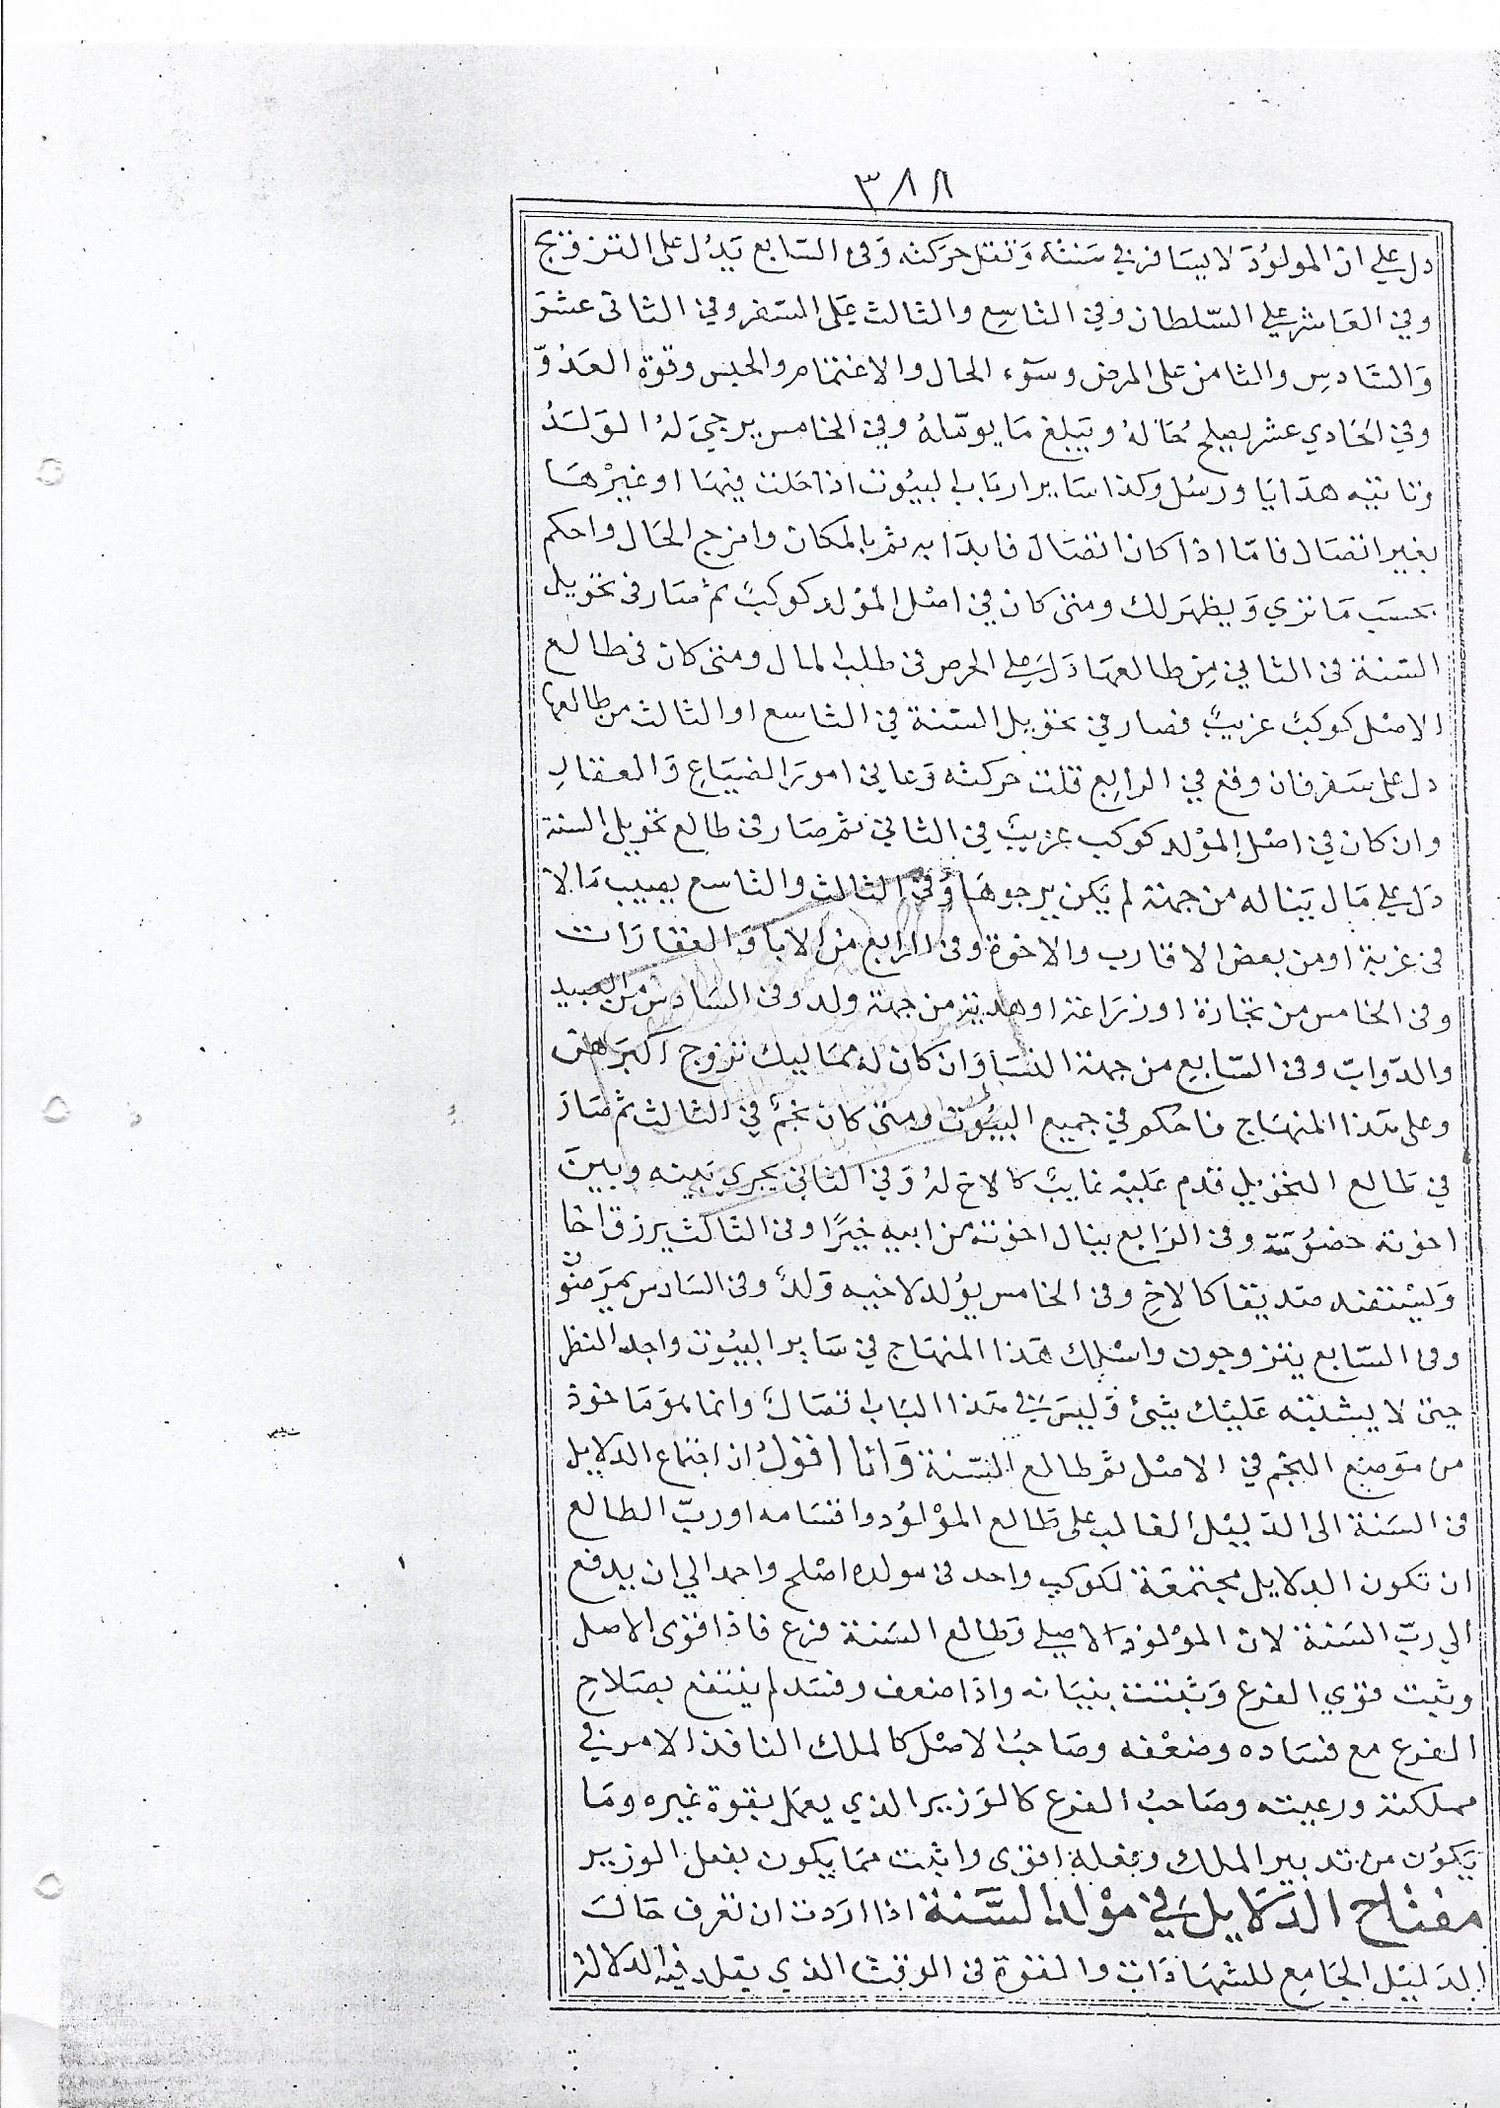 ٣٨٨
دل علي ان المولود لا يسافر في سنته وتقل حركته وفى السابع يدل على التزويج
وفي العاشر علي السلطان وفي التاسع والثالث على السفر وفي الثاني عشر
والسادس والثامن على المرض وسوء الحال والاغتمام والحبس وقوة العدوّ
وفي الحادي عشر يصلح حاله ويبلغ ما يومّله وفي الخامس يرجي له الولد
وتاتيه هدايا ورسل وكذا ساير ارباب البيوت اذا حلت فيها او غيرها
بغير اتصال فامّا اذا كان اتصال فابدا به ثم بالمكان وامزج الحال واحكم
بحسب ما تري ويظهر لك ومتى كان في اصل المولد كوكبٌ ثم صار فى تحويل
السنة فى الثاني من طالعها دل علي الحرص فى طلب المال ومتى كان فى طالع
الاصل كوكبٌ غريبٌ فصار في تحويل السنة في التاسع او الثالث من طالعها
دل على سفر فان وقع في الرابع قلت حركته وعاني امور الضياع والعقار
وان كان في اصل المولد كوكب غريبٌ في الثاني ثم صار فى طالع تحويل السنة
دل علي مال يناله من جهة لم يكن يرجوها وفى الثالث والتاسع يصيب مالا
فى غربة او من بعض الاقارب والاخوة وفى الرابع من الابا والعقارات
وفى الخامس من تجارة او زراعة او هدية من جهة ولد وفى السادس من العبيد
والدّوابّ وفى السّابع من جهة النسا وان كان له مماليك تزوج اكبرهن
وعلى هذا المنهاج فاحكم في جميع البيوت ومتى كان نجمٌ في الثالث ثم صار
في طالع التحويل قدم عليه غايبٌ كالاخ له وفي الثاني يجري بينه وبين
اخوته خصومة وفى الرابع ينال اخوته من ابيه خيرًا وفى الثالث يرزق اخا
وليستفد صديقا كالاخ وفى الخامس يولد لاخيه ولدٌ وفى السادس يمرضو
وفى السّابع يتزوجون واسلك هذا المنهاج في ساير البيوت واجد النظر
حتى لا يشتبه عليك شئ وليس في هذا الباب اتصالٌ وانما هو ماخوذ
من موضع النجم في الاصل ثم طالع السّنة وانا اقول ان اجتماع الدلايل
فى السنة الى الدليل الغالب على طالع المولود واقسامه او ربّ الطالع
ان تكون الدلايل مجتمعة لكوكب واحد فى مولده اصلح واحمد الي ان يدفع
الي ربّ السنة لان المولود الاصلي وطالع السنة فرع فاذا قوى الاصل
وثبت قوي الفرع وثبتت بنيانه واذا ضعف وفسد لم ينتفع بصلاح
الفرع مع فساده وضعفه وصاحبُ الاصل كالملك النافذ الامر في
مملكته ورعيته وصاحبُ الفرع كالوزير الذي يعمل بقوة غيره وما
يكون من تدبير الملك وبفعله اقوى واثبت مما يكون بفعل الوزير
مفتاح الدّلايل في مولد السّنة اذا اردت ان تعرف حالت
الدليل الجامع للشهادات والقوة فى الوقت الذي يقلد فيه الدلالة